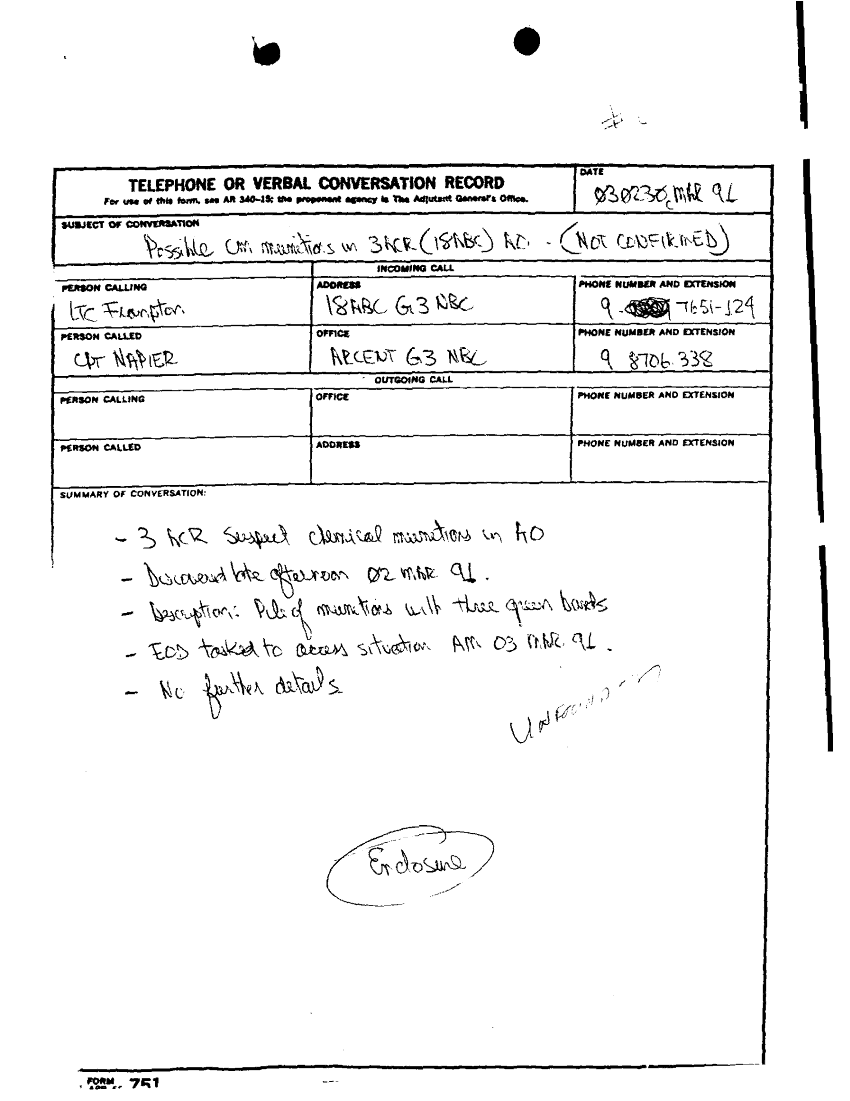 TELEPHONE OR VERBAL CONVERSATION RECORD
For use of this form, see AR 340-15; the proponent agency is The Adjutant General's Office.
DATE
030230C MAR 91
SUBJECT OF CONVERSATION
Possible munitions in 3ACR (18ABC) AO - (NOT CONFIRMED)
INCOMING CALL
PERSON CALLING
LTC Frampton
ADDRESS
18ABC G3 NBC
PHONE NUMBER AND EXTENSION
9 - 7651-124
PERSON CALLED
CPT NAPIER
OFFICE
ARCENT G3 NBC
PHONE NUMBER AND EXTENSION
9 8706.338
OUTGOING CALL
PERSON CALLING
OFFICE
PHONE NUMBER AND EXTENSION
PERSON CALLED
ADDRESS
PHONE NUMBER AND EXTENSION
SUMMARY OF CONVERSATION:
- 3 ACR suspect chemical munitions in AO
- Discovered late afternoon 02 MAR 91.
- Description: Pile of munitions with three green bands
- EOD tasked to access situation AM 03 MAR 91.
- No further details
Enclosure
FORM 751